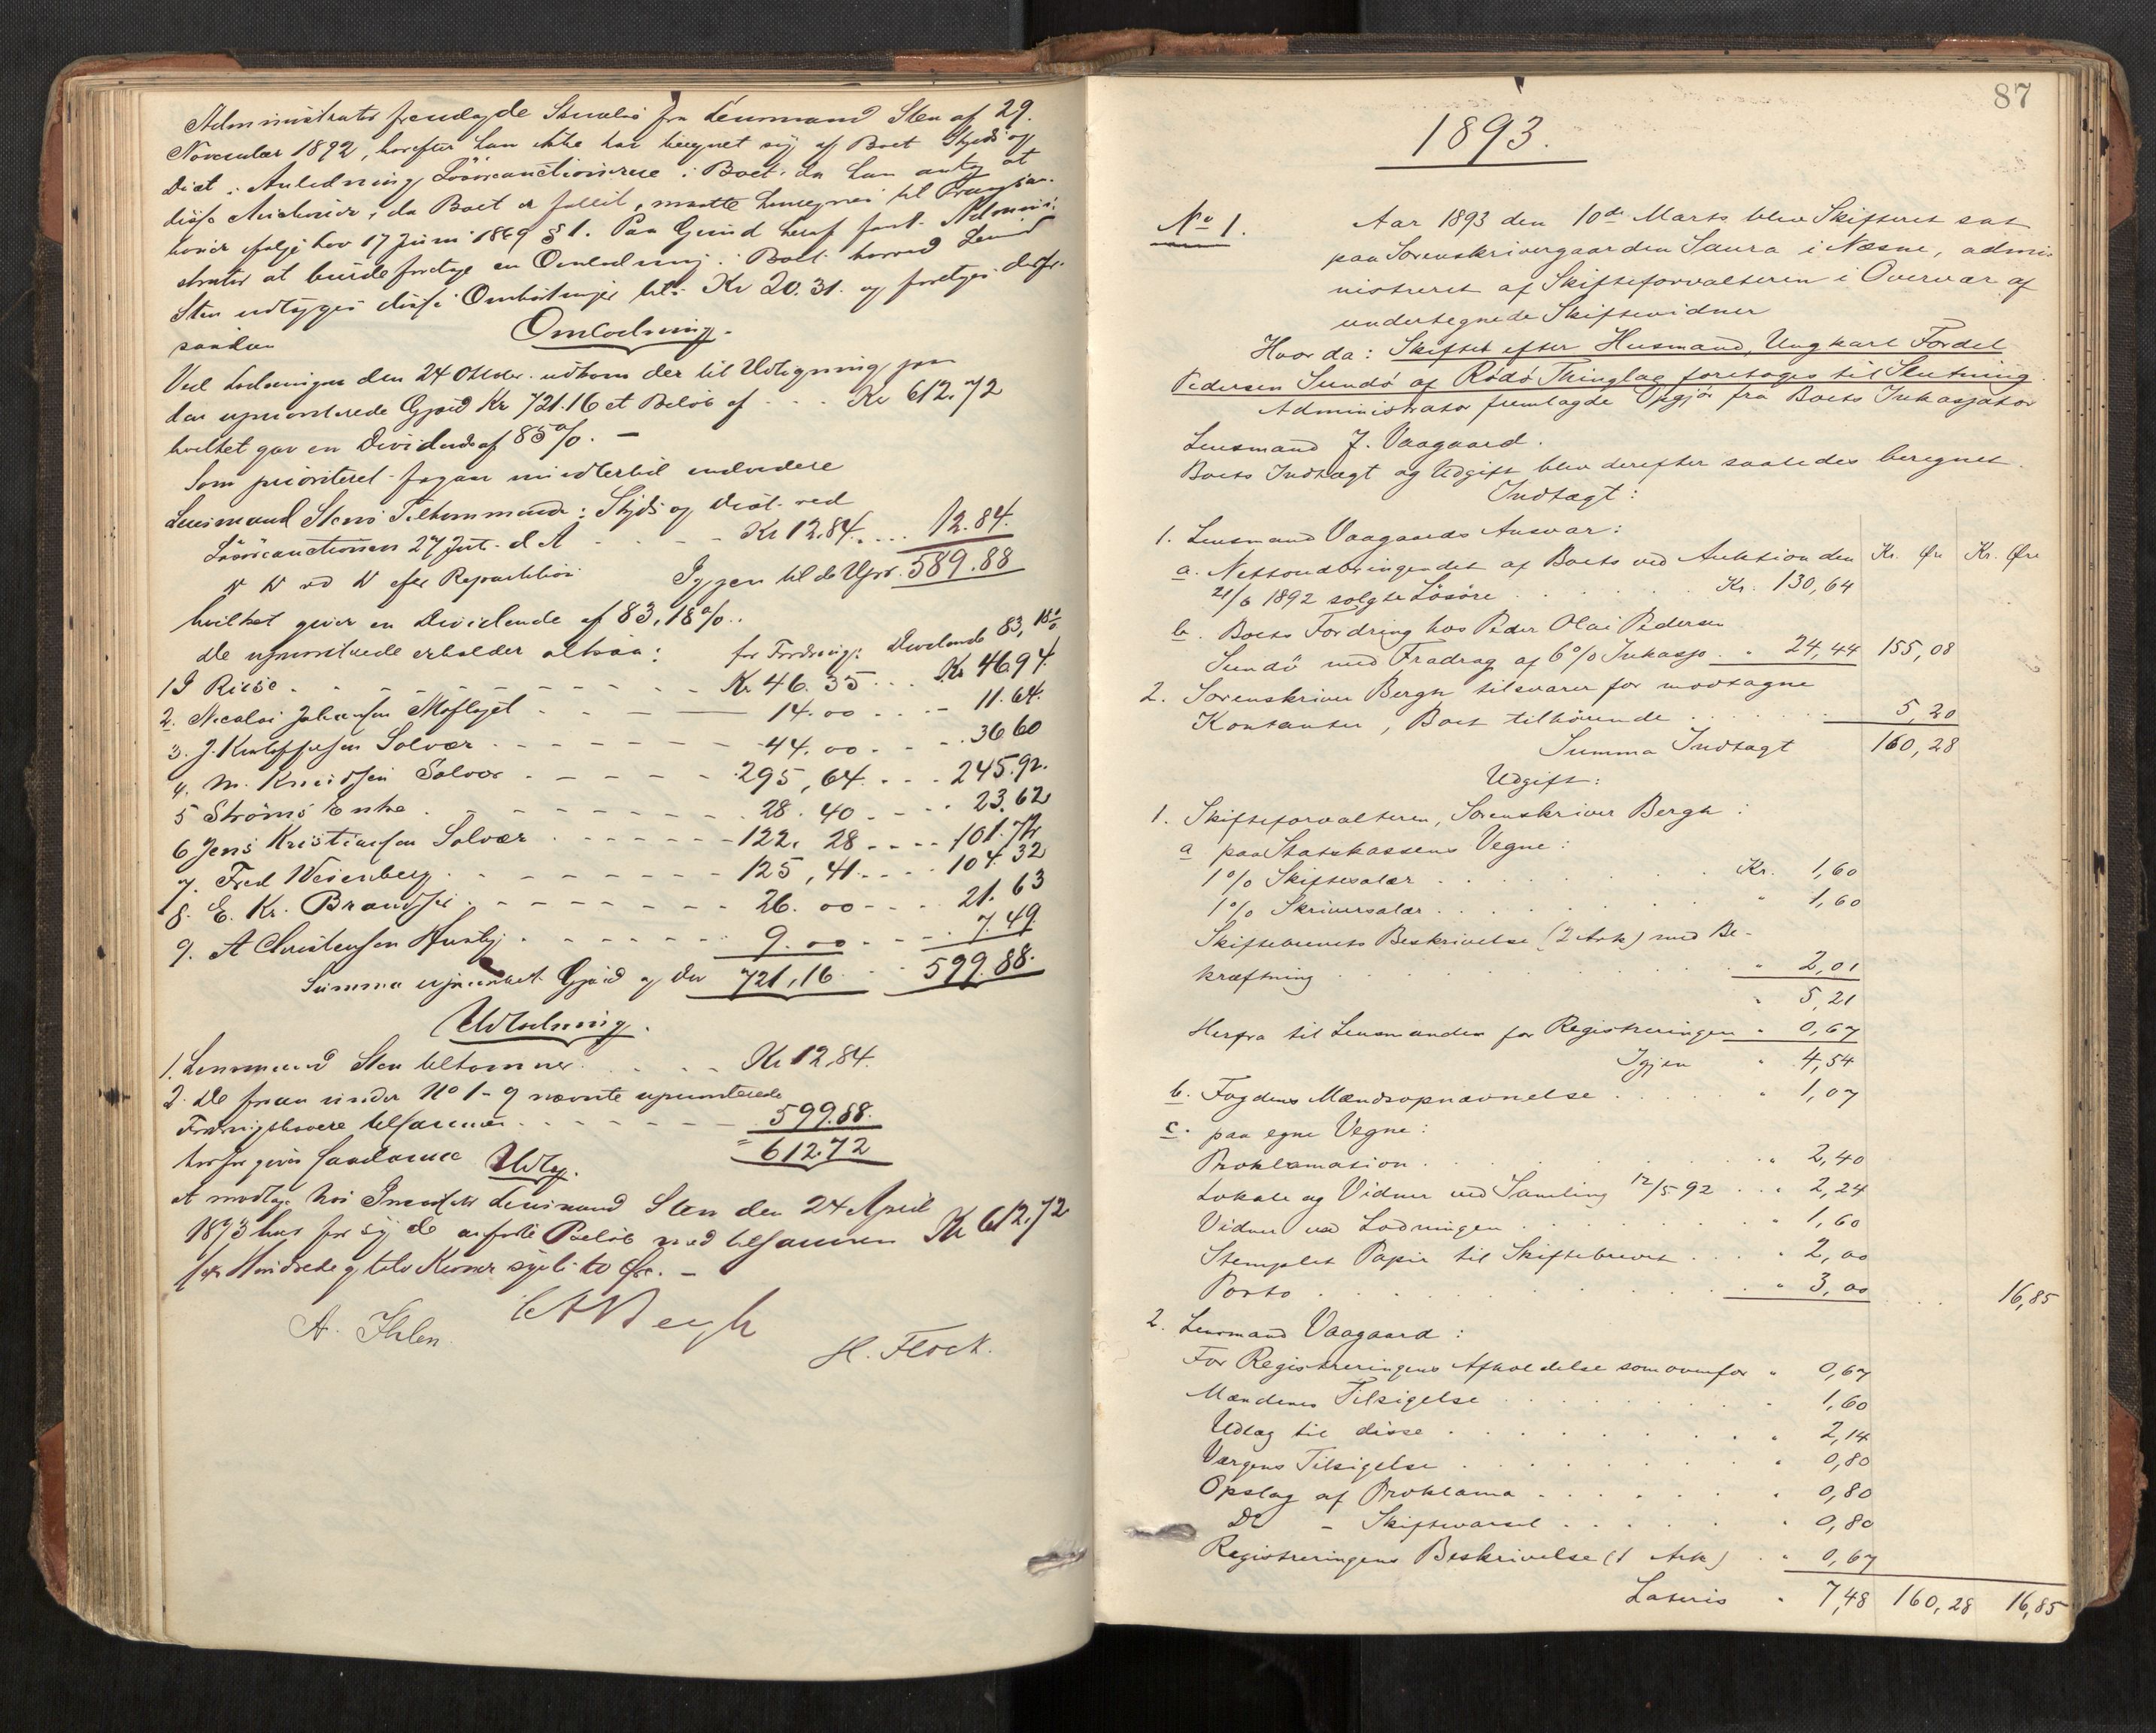 Administrator fremlagde Skrivelse fra Lensmand Sten af 29.
November 1892, hvorefter han ikke har beregnet sig af Boet Skyds og
Diæt i Anledning Løsøreauctionerne i Boet, da han antog at
disse Auctioner, da Boet er fallit, maatte henregnes til Tvangsauc-
tioner ifølge Lov 17 Juni 1869 § 1. Paa Grund heraf fandt Admini-
strator at burde foretage en Omlodning i Boet hvorved Lensmd
Sten udlægges disse Omkostninger Kr 20.31. og foretages derfor
saadan
Omlodning.
Ved Lodningen den 24 Oktober udkom der til Udligning paa
den uprioriterede Gjæld Kr 721.16 et Beløb af - - - Kr 612.72
hvilket gav en Dividende af 85%. —
Som prioriteret fragaar imidlertid endvidere
Lensmand Stens Tilkommende: Skyds og Diæt ved
Løsøreauctionen 27 Juli d. A - - - - Kr 12.84. . . . 12.84.
Igjen til de Upr. 589.88
hvilket giver en Dividende af 83,18%.
De uprioriterede erholder altsaa: for Fordring: Dividende 83,18%
1 J Riise . - - - - - - Kr 46.35 . . . Kr 4694.
2. Nicolai Johansen Moflaget - - - — 14.00 - - - - 11.64.
3. J. Kristoffersen Solvær - - - - - - 44.00. - - . 36 60
4. M. Knudsen Solvær . - - - - - 295,64. . . . 245.92.
5 Strøms Enke . - - - - - - 28.40. - - - 23.62
6 Jens Kristiansen Solvær . - - - - - 122.28 - - - - 101.72
7. Fred Wesenberg . - - - - - - 125,41. - - - 104.32
8. E. Kr. Brandser . - - - - - - 26.00 - - - - 21.63
9. A Christensen Husby . - - - - - - 9.00 - - - . 7.49.
Summa uprioriteret Gjæld og Div 721,16. . . 599.88.
Udlodning.
1. Lensmand Sten tilkommer. . - - Kr 12.84.
2. De foran under No 1-9 nævnte uprioriterede
Fordringshavere tilsammen . - - - - - 599.88.
= 612.72
hvorfor gives saadanne Udlæg.
at modtage hos Incassator Lensmand Sten den 24 April
1893 hver for sig de anførte Beløb med tilsammen Kr 612.72
sex Hundrede og tolv Kroner sytti to Øre. —
A. Ihlen. H. Flock.
87
1893.
No 1. Aar 1893 den 10de Marts blev Skifteret sat
paa Sorenskrivergaarden Saura i Næsne, admi-
nistreret af Skifteforvalteren i Overvær af
undertegnede Skiftevidner
Hvor da: Skiftet efter Husmand, Ungkarl Fordel
Pedersen Sundø af Rødø Thinglag foretoges til Slutning.
Administrator fremlagde Opgjør fra Boets Inkassator
Lensmand J. Vaagaard.
Boets Indtægt og Udgift blev derefter saaledes beregnet.
Indtægt:
1. Lensmand Vaagaards Ansvar: Kr. Øre Kr. Øre
a. Nettoudbringendet af Boets ved Auktion den
21/6 1892 solgte Løsøre . . . . . . Kr. 130,64
b. Boets Fordring hos Peder Olai Pedersen
Sundø med Fradrag af 6% Inkasso . " 24,44 155,08
2. Sorenskriver Bergh tilsvarer for modtagne
Kontanter, Boet tilhørende . . . . . . 5,20
Summa Indtægt 160,28
Udgift:
1. Skifteforvalteren, Sorenskriver Bergh:
a paa Statskassens Vegne:
1% Skiftesalær . . . . . . Kr. 1,60
1% Skriversalær . . . . . . " 1,60
Skiftebrevets Beskrivelse (2 Ark) med Be-
kræftning . . . . . . " 2,01
" 5,21
Herfra til Lensmanden for Registreringen " 0,67
Igjen " 4,54
b. Fogdens Mændsopnævnelse . . . . . " 1,07
c. paa egne Vegne:
Proklamation . . . . . . " 2,40
Lokale og Vidner ved Samling 12/5 92 . . " 2,24
Vidner ved Lodningen . . . . . . " 1,60
Stemplet Papir til Skiftebrevet . . . " 2,00
Porto . . . . . . " 3,00 . . 16,85
2. Lensmand Vaagaard:
For Registreringens Afholdelse som ovenfor " 0,67
Mændenes Tilsigelse . . . . . . " 1,60
Udlæg til disse . . . . . . " 2,14
Værgens Tilsigelse . . . . . . " 0,80
Opslag af Proklama . . . . . . " 0,80
Do - Skiftevarsel . . . . . " 0,80
Registreringens Beskrivelse (1 Ark) . " 0,67
Lateris " 7,48 160,28 16,85